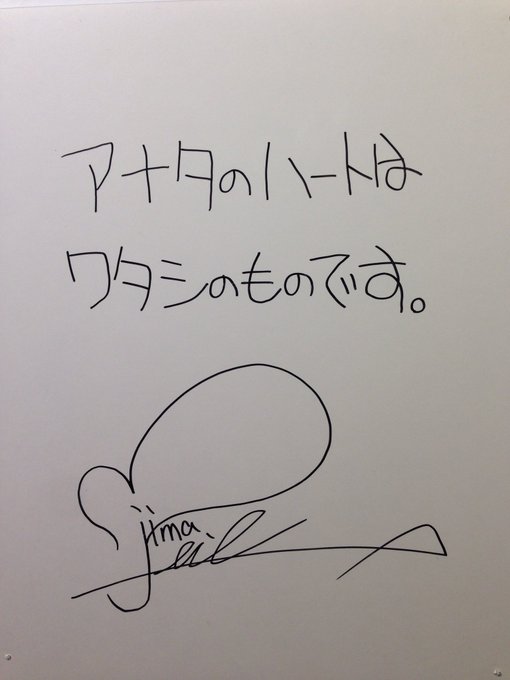 アナタのハートは
ワタシのものです。
jima